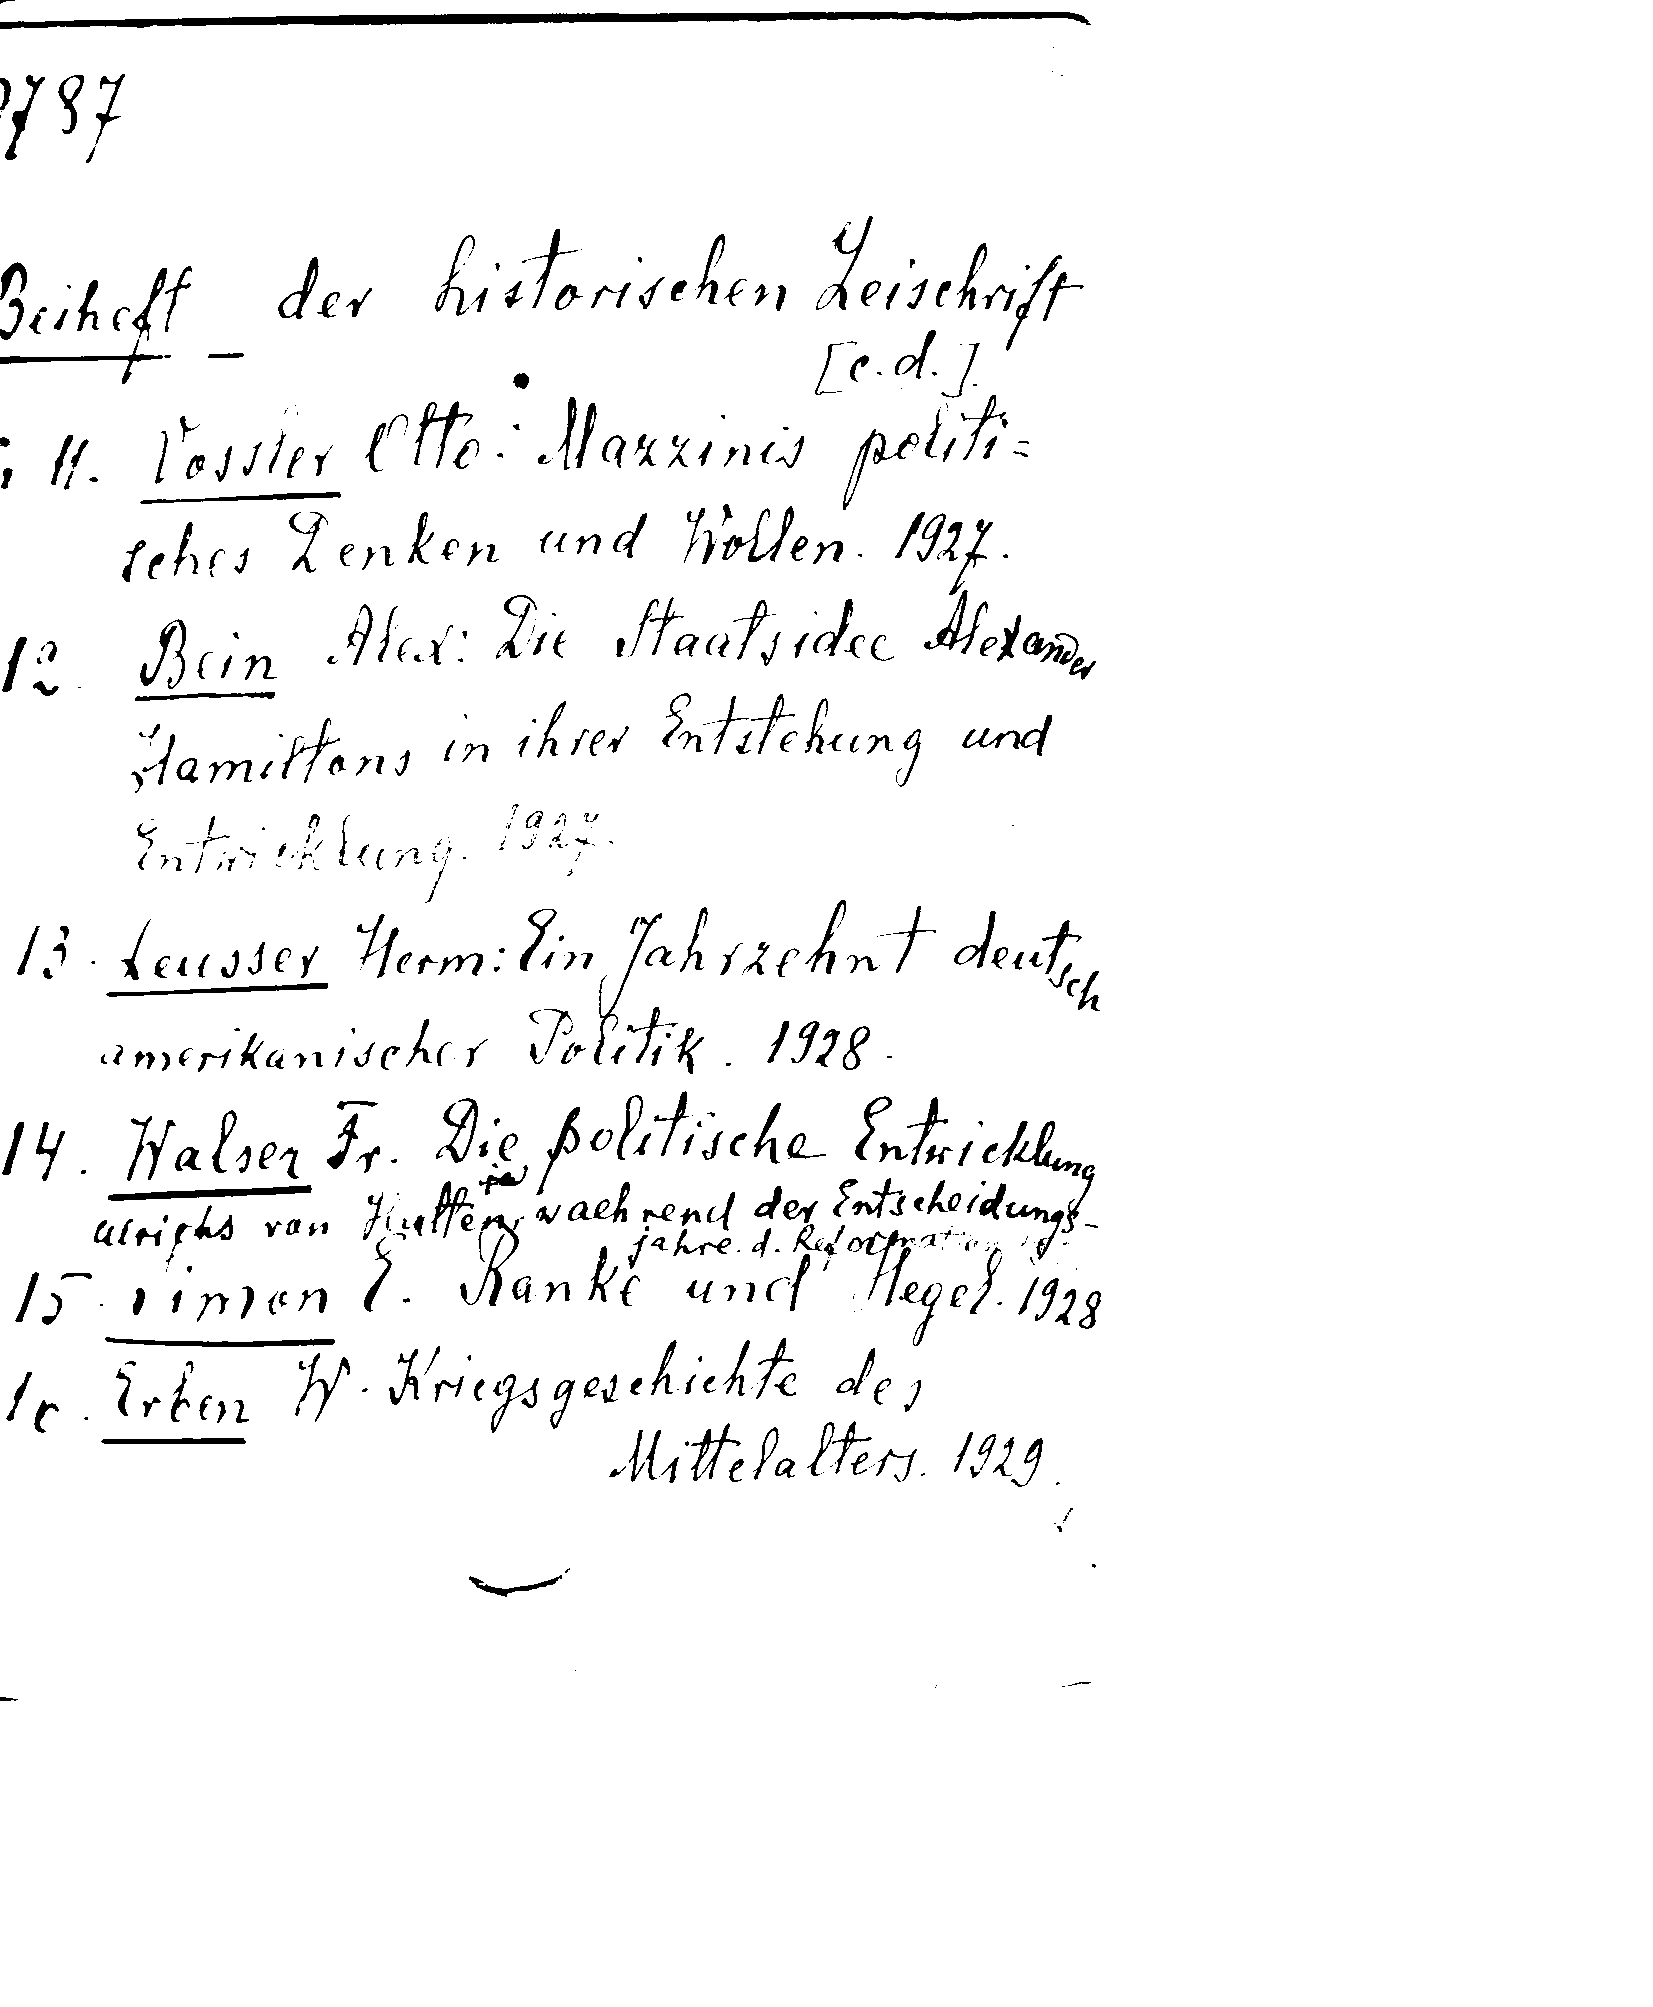 787
Beiheft - der historischen Zeischrift
[c.d.]
11. Vossler Otto: Mazzinis politi=
sches Denken und Wollen. 1927.
12. Bein Alex: Die Staatsidee Alexander
Hamiltons in ihrer Entstehung und
Entwicklung. 1927.
13. Leusser Herm: Ein Jahrzehnt deutsch
amerikanischer Politik. 1928.
14. Walser Fr. Die politische Entwicklung
Ulrichs von Hutten waehrend der Entscheidungs-
jahre d. Reformation
15. Simon E. Ranke und Hegel. 1928
Erben W. Kriegsgeschichte des
Mittelalters. 1929.